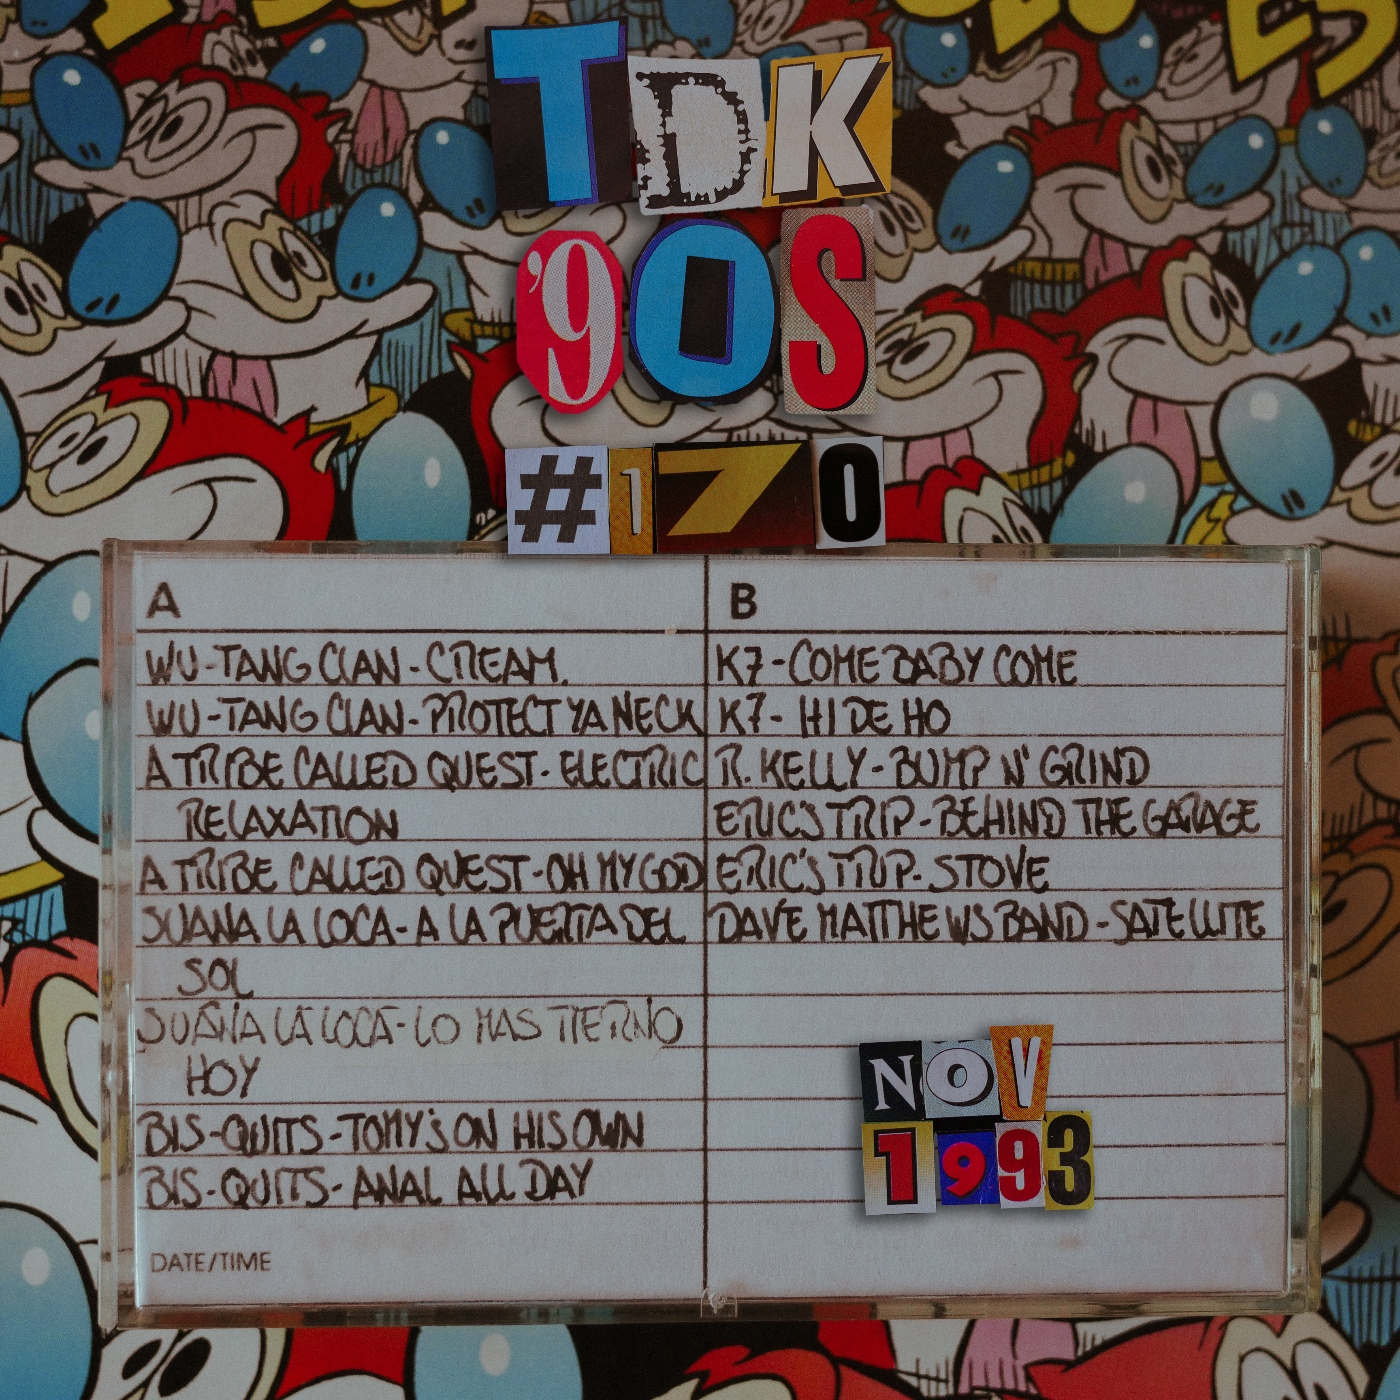 TDK
'90S
#170
A
WU-TANG CLAN - CREAM.
WU-TANG CLAN - PROTECT YA NECK
A TRIBE CALLED QUEST - ELECTRIC
RELAXATION
A TRIBE CALLED QUEST - OH MY GOD
JUANA LA LOCA - A LA PUERTA DEL
SOL
JUANA LA LOCA - LO MAS TIERNO
HOY
BIS-QUITS - TOMY'S ON HIS OWN
BIS-QUITS - ANAL ALL DAY
DATE/TIME
B
K7 - COME BABY COME
K7 - HI DE HO
R. KELLY - BUMP N' GRIND
ERIC'S TRIP - BEHIND THE GARAGE
ERIC'S TRIP - STOVE
DAVE MATTHEWS BAND - SATELLITE
NOV
1993